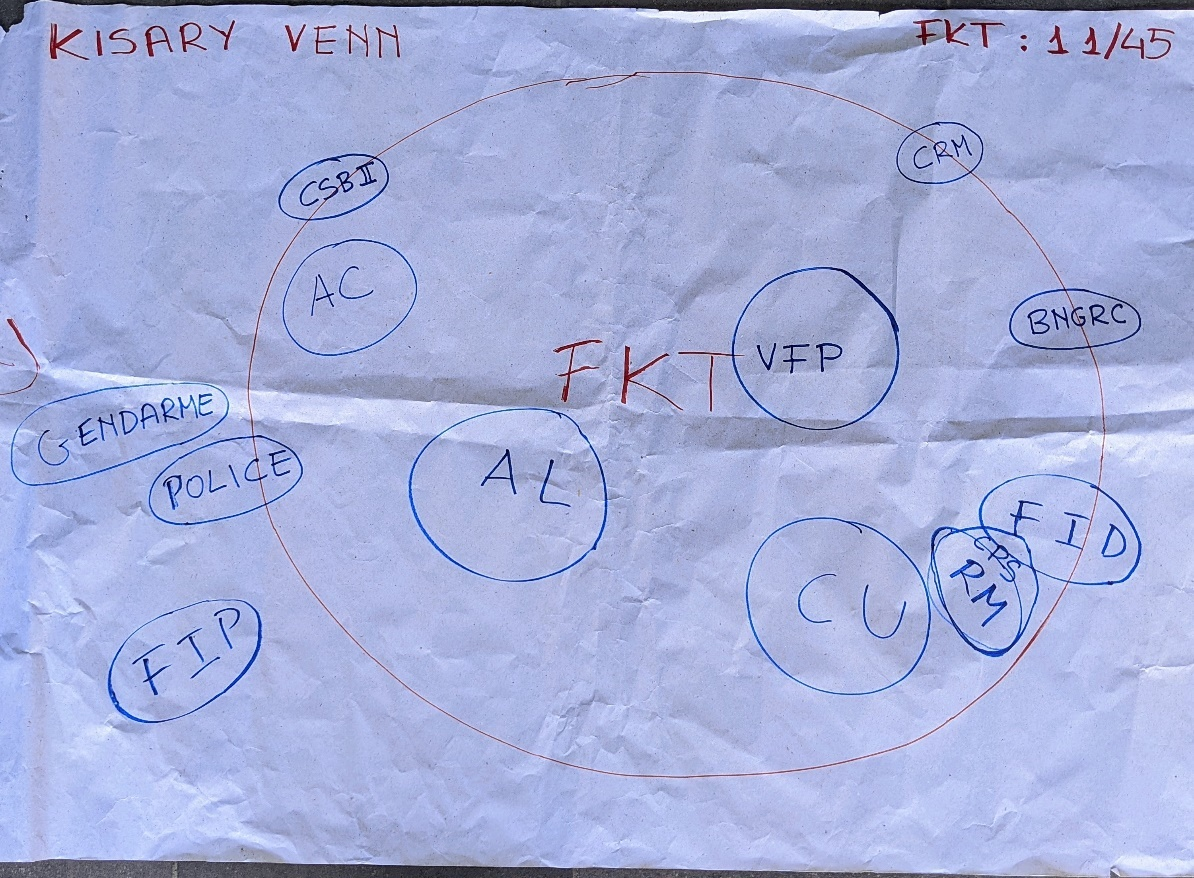 KISARY VENN
FKT : 11/45
CSBII
CRM
AC
BNGRC
FKT
VFP
GENDARME
POLICE
AL
FID
CU
RM
FIP